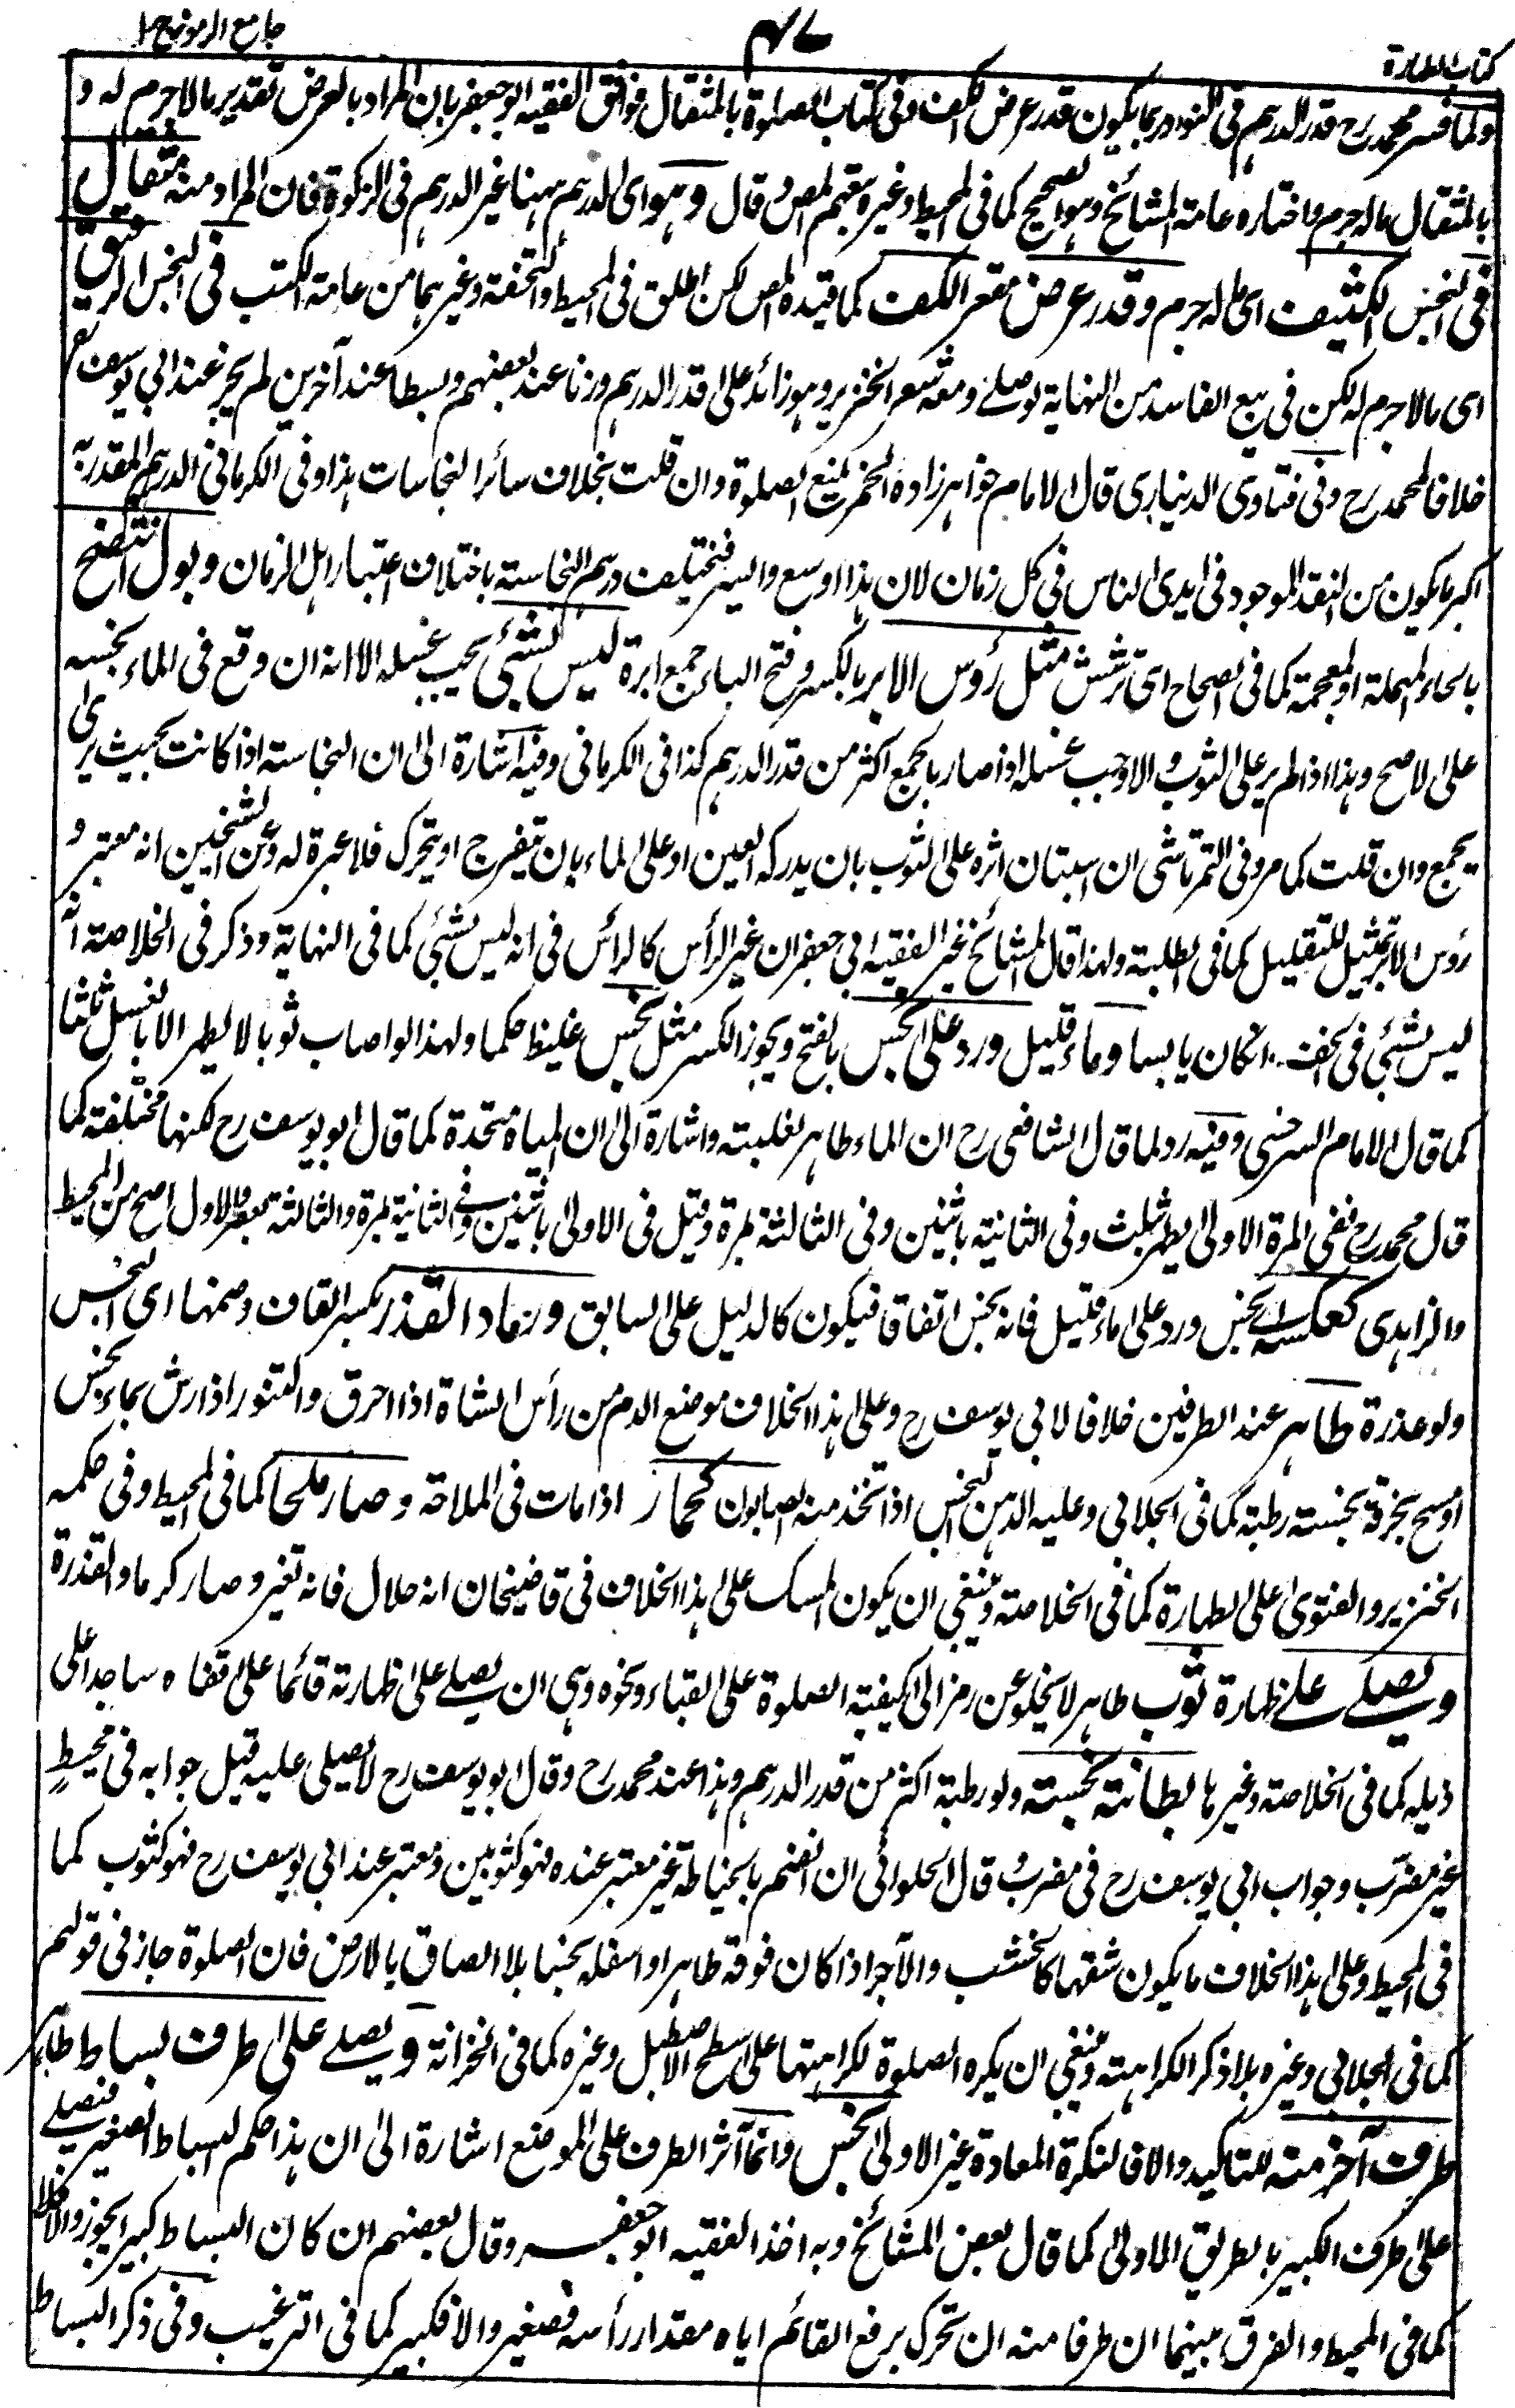 كتاب الطهارة
٤٧
جامع الرموز ج ١
ولما فسر محمد رح قدر الدرهم فى النوادر بما يكون قدر عرض الكف وفى كتاب الصلوة بالمثقال فوفق الفقيه ابو جعفر بان المراد بالعرض تقدير مالاجرم له و
بالمثقال ماله جرم واختاره عامة المشائخ وهو الصحيح كما فى المحيط وغيره سقم المص وقال وهو اى الدرهم ههنا غير الدرهم فى الزكوة فان المراد منه مثقال
فى النجس الكثيف اى ماله جرم وقدر عرض مقعر الكف كما قيده المص لكن اطلق فى المحيط والتحفة وغيرهما من عامة الكتب فى النجس الرقيق
اى مالاجرم له لكن فى بيع الفاسد من النهاية لو صلے ومعه شعر الخنزير وهو زائد على قدر الدرهم وزنا عند بعضهم وبسطا عند آخرين لم يجز عند ابى يوسف رح
خلافا لمحمد رح وفى فتاوى الدينارى قال الامام خواهرزاده الخمر تمنع الصلوة وان قلت بخلاف سائر النجاسات هذا وفى الكرمانى الدرهم المقدر به
اكبر ما يكون من النقد الموجود فى ايدى الناس فى كل زمان لان هذا اوسع وايسر فيختلف درهم النجاسة باختلاف اعتبار اهل الزمان وبول انتضح
بالحاء المهملة او المعجمة كما فى الصحاح اى ترشش مثل رؤس الابر بالكسر وفتح الباء جمع ابرة ليس بشئ يجب غسله الا انه ان وقع فى الماء نجسه
على الاصح وهذا اذا لم ير على الثوب والا وجب غسله اذا صار بالجمع اكثر من قدر الدرهم كذا فى الكرمانى وفيه اشارة الى ان النجاسة اذا كانت بحيث يرى
يجمع وان قلت كما مر وفى التمرتاشى ان استبان اثره على الثوب بان يدركه العين او على الماء بان ينفرج او يتحرك فلا عبرة له وعن الشيخين انه معتبر و
رؤس الابر تمثيل للتقليل كما فى الطلبة ولهذا قال المشائخ غير الفقيه ابى جعفر ان غير الرأس كالرأس فى انه ليس بشئ كما فى النهاية وذكر فى الخلاصة انه
ليس بشئ فى الخف ان كان يابسا وماء قليل ورد على نجس بالفتح ويجوز الكسر مثل نجس غليظ حكما ولهذا لو اصاب ثوبا لا يطهر الا بالغسل ثلثا
كما قال الامام السرخسى وفيه رد لما قال الشافعى رح ان الماء طاهر لغلبته واشارة الى ان المياه متحدة كما قال ابو يوسف رح لكنها مختلفة كما
قال محمد رح ففى المرة الاولى يطهر بثلث وفى الثانية باثنين وفى الثالثة بمرة وقيل فى الاولى باثنين وفى الثانية بمرة والثالثة بعصر والاول اصح من المحيط
والزاهدى كعكسه اے نجس ورد على ماء قليل فانه نجس اتفاقا فيكون كالدليل على السابق ورماد القذر بكسر القاف وضمها اى النجس
ولو عذرة طاهر عند الطرفين خلافا لابى يوسف رح وعلى هذا الخلاف موضع الدم من رأس الشاة اذا احرق والتنور اذا رش بماء نجس
او مسح بخرقة نجسة رطبة كما فى الجلابى وعليه الدهن النجس اذا اتخذ منه الصابون كحمار اذا مات فى الملاحة وصار ملحا كما فى المحيط وفى حكمه
الخنزير والفتوى على الطهارة كما فى الخلاصة وينبغى ان يكون المسك على هذا الخلاف فى قاضيخان انه حلال فانه تغير وصار كرماد القذرة
ويصلے علے ظهارة ثوب طاهر لا يخلو عن رمز الى كيفية الصلوة على القباء ونحوه وهى ان يصلے على ظهارته قائما على قفاه ساجدا على
ذيله كما فى الخلاصة وغيرها بطانته نجسة ولو رطبة اكثر من قدر الدرهم وهذا عند محمد رح وقال ابو يوسف رح لا يصلى عليه قيل جوابه فى مخيط
غير مضرب وجواب ابى يوسف رح فى مضرب وقال الحلوانى ان الضم بالخياطة غير معتبر عنده فهو كثوبين ومعتبر عند ابى يوسف رح فهو كثوب كما
فى المحيط وعلى هذا الخلاف ما يكون شقهما كالخشب والآجر اذا كان فوقه طاهرا واسفله نجسا بلا الصاق بالارض فان الصلوة جاز فى قولهم
كما فى الجلابى وغيره بلا ذكر الكراهة وينبغى ان يكره الصلوة لكراهتها على سطح الاصطبل وغيره كما فى الخزانة ويصلے على طرف بساط طاهر
طرف آخر منه للتاكيد والا فالنكرة المعادة غير الاولى نجس وانما آثر الطرف على الموضع اشارة الى ان هذا حكم البساط الصغير فيصلے
على طرف الكبير بالطريق الاولى كما قال بعض المشائخ وبه اخذ الفقيه ابو جعفر وقال بعضهم ان كان البساط كبيرا يجوز والا فلا
كما فى المحيط والفرق بينهما ان طرفا منه ان تحرك برفع القائم اياه مقدار رأسه فصغير والا فكبير كما فى الترغيب وفى ذكر البساط